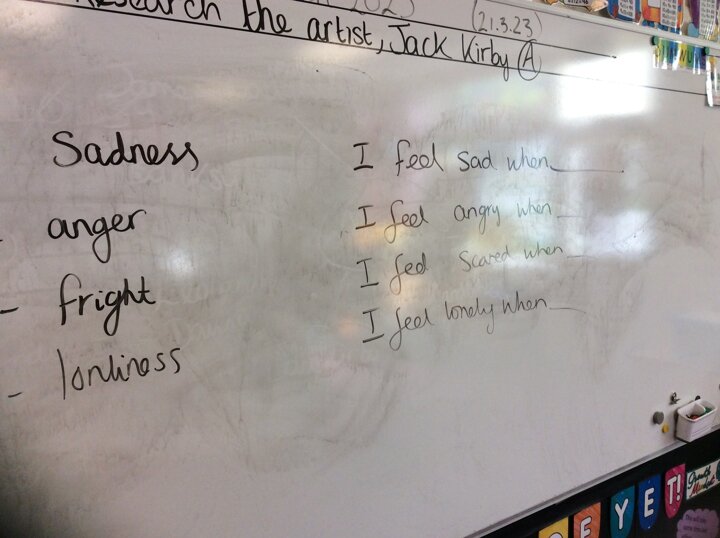 (21.3.23)
Research the artist, Jack Kirby A
Sadness
anger
- fright
- lonliness
I feel sad when______.
I feel angry when__
I feel scared when__
I feel lonely when___
YET!
Growth